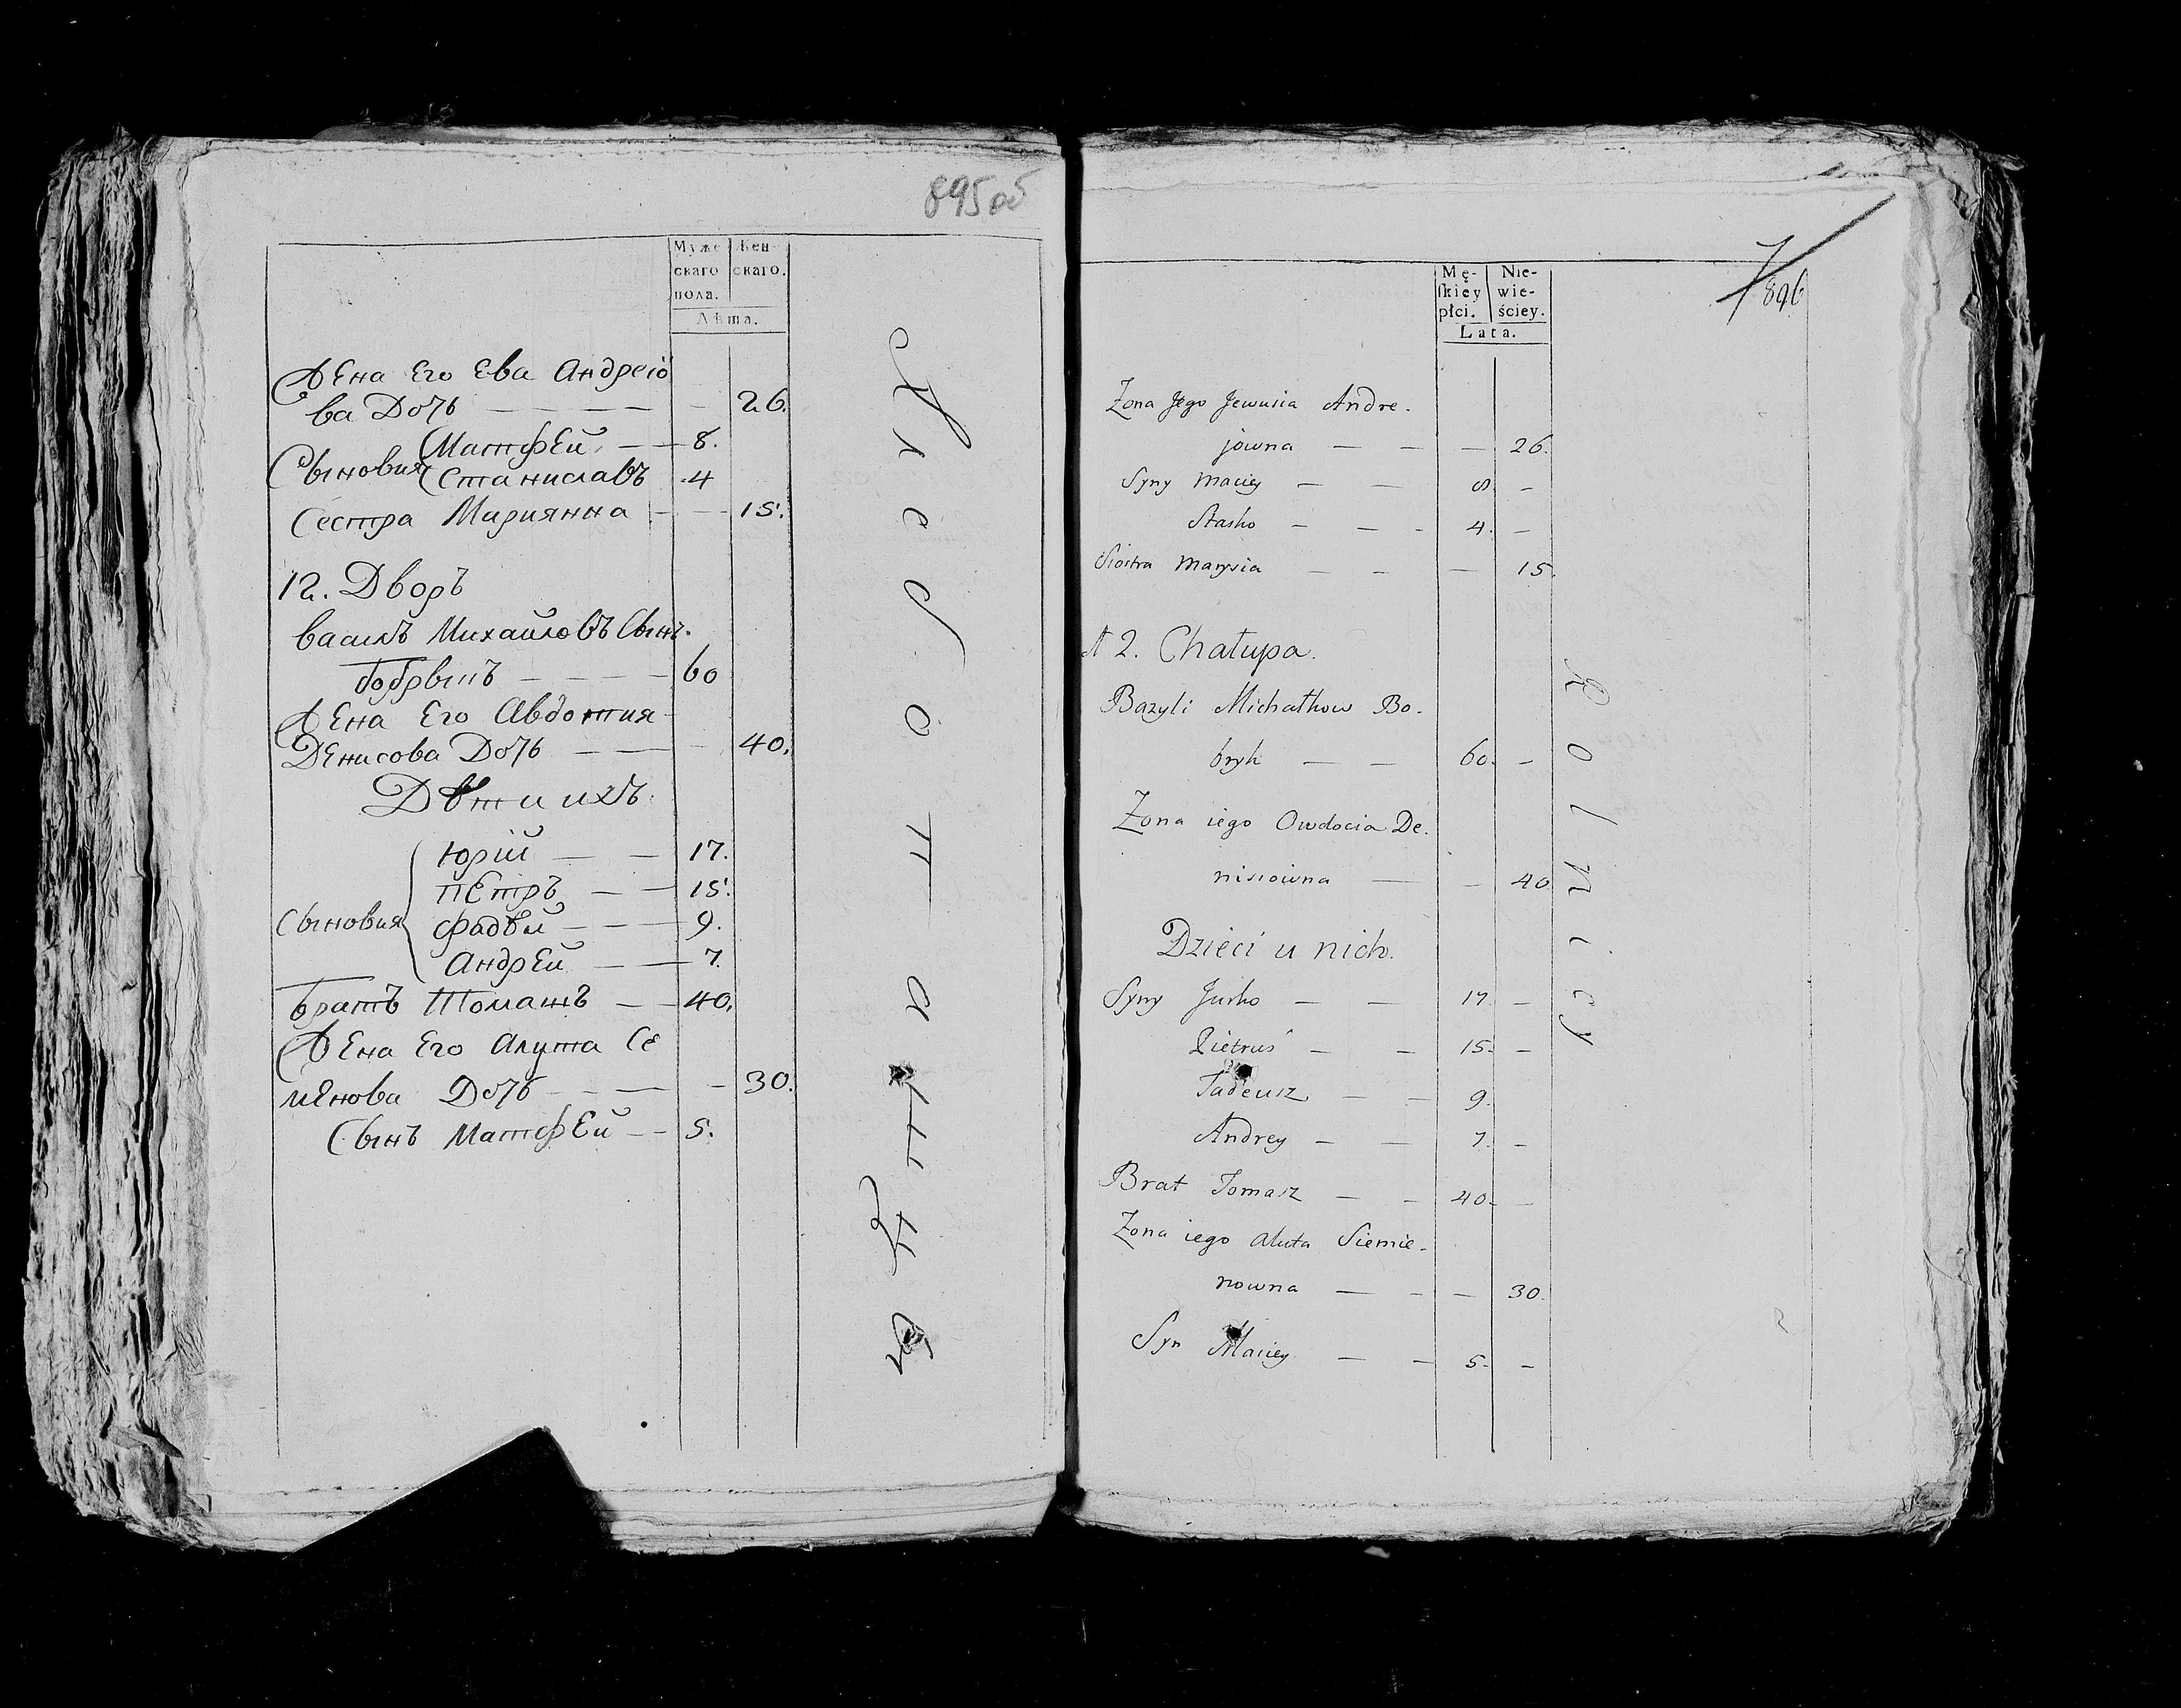 895 об
Муже Жен-
скаго скаго.
пола.
Лѣта.
Жена Его Ева Андреіо
ва Дочь — — — — — 26.
Сыновия Матфей — — 8.
Станиславъ 4
Сестра Мариянна — — 15.
12. Дворъ
василь Михайловъ Сынъ
бобрыкъ — — — — 60
Жена Его Авдотия
Денисова Дочь — — — 40.
Дѣти ихъ
Юрій — — 17.
пЕтръ — — 15.
Сыновия фадѣй — — 9.
АндрЕй — — 7.
братъ Томашъ — — 40.
Жена Его Алута Се
мЕнова Дочь — — — 30.
Сынъ МатфЕй — — 5.
Хлебопашцы
7
896
Mę- Nie-
ſkiey wie-
płci. ściey.
Lata.
Zona Jego Jewusia Andre.
jowna — — — 26.
Syny Maciey — — 8. —
Stasko — — - 4. —
Siostra Marysia — — — 15.
№ 2. Chałupa.
Bazyli Michałkow Bo.
bryk — — 60. —
Zona iego Owdocia De.
nisiowna — — 40
Dzieci u nich.
Syny Jurko — — 17. —
Pietruś — — 15. —
Tadeusz — — 9.
Andrey — — 7. —
Brat Tomasz — — 40. —
Zona iego Aluta Siemie.
nowna — - — 30.
Syn Maciey — — 5. —
Rolnicy